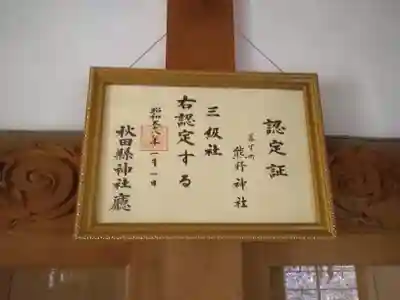 認定証
熊野神社
三級社
右認定する
昭和五八年一月一日
秋田縣神社廳